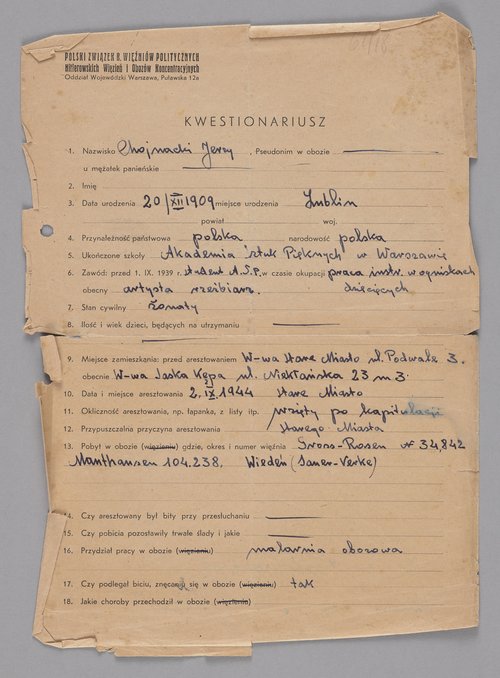 POLSKI ZWIĄZEK B. WIĘŹNIÓW POLITYCZNYCH
Hitlerowskich Więzień i Obozów Koncentracyjnych
Oddział Wojewódzki Warszawa, Puławska 12a
KWESTIONARIUSZ
1. Nazwisko Chojnacki Jerzy, Pseudonim w obozie
u mężatek panieńskie
2. Imię
3. Data urodzenia 20/XII 1909 miejsce urodzenia Lublin
powiat woj.
4. Przynależność państwowa polska narodowość polska
5. Ukończone szkoły Akademia Sztuk Pięknych w Warszawie
6. Zawód: przed 1. IX. 1939 r. student A.S.P. w czasie okupacji praca instr. w ogniskach
obecny artysta rzeźbiarz. dziecięcych
7. Stan cywilny żonaty
8. Ilość i wiek dzieci, będących na utrzymaniu
9. Miejsce zamieszkania: przed aresztowaniem W-wa Stare Miasto ul. Podwale 3.
obecnie W-wa Saska Kępa ul. Niekłańska 23 m 3.
10. Data i miejsce aresztowania 2. IX. 1944 Stare Miasto
11. Okoliczność aresztowania, np. łapanka, z listy itp. wzięty po kapitulacji
12. Przypuszczalna przyczyna aresztowania Starego Miasta
13. Pobyt w obozie (więzieniu) gdzie, okres i numer więźnia Gross-Rosen nr 34,842
Manthausen 104.238. Wiedeń (Saner-Verke)
14. Czy aresztowany był bity przy przesłuchaniu
15. Czy pobicia pozostawiły trwałe ślady i jakie
16. Przydział pracy w obozie (więzieniu) malarnia obozowa
17. Czy podlegał biciu, znęcaniu się w obozie (więzieniu) tak
18. Jakie choroby przechodził w obozie (więzieniu)